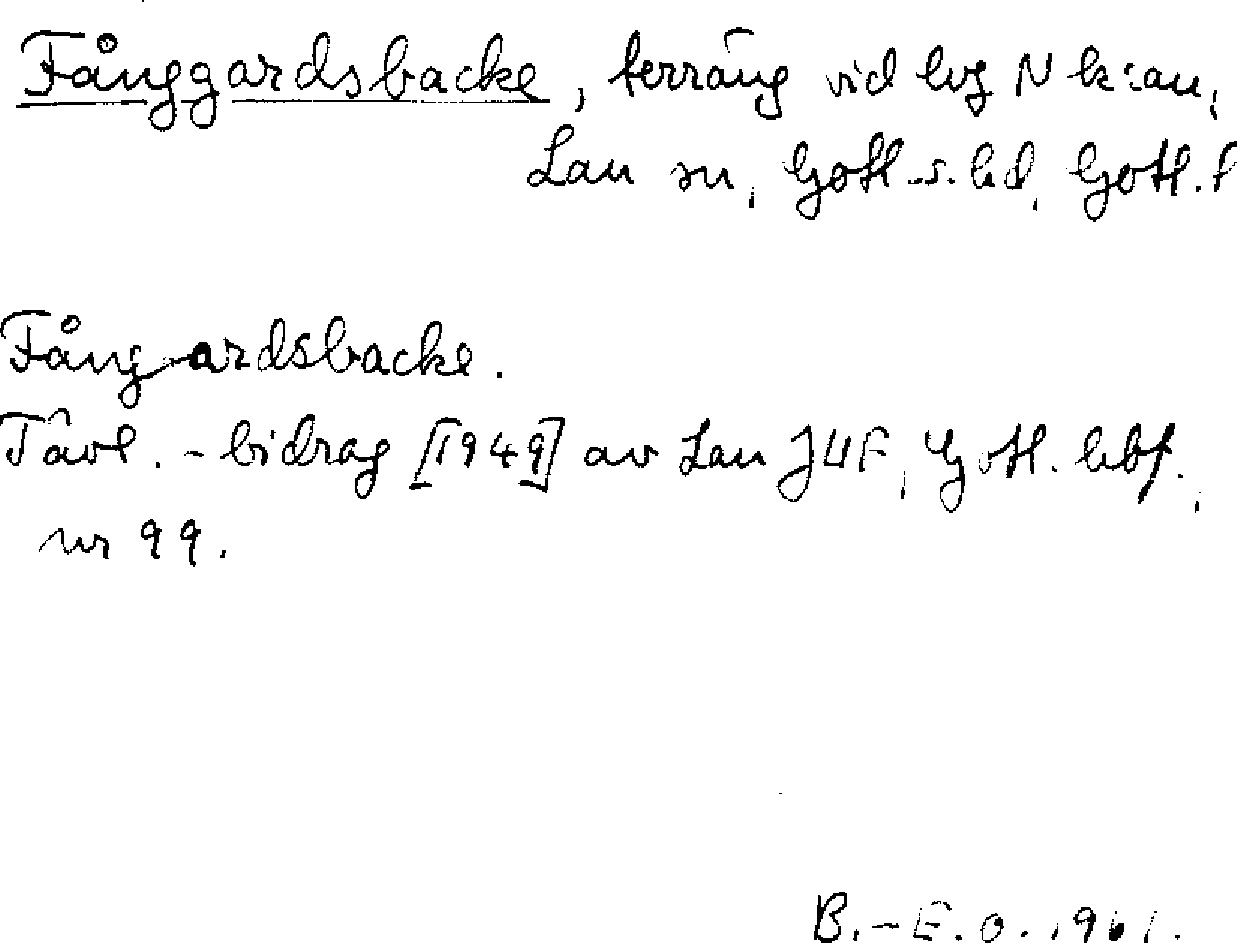 Fånggardsbacke, terräng vid lvg N k:an,
Lau sn, Gotl. s. hd, Gotl. l
Fångardsbacke.
Tävl.-bidrag [1949] av Lau JUF, Gotl. hbf.,
nr 99.
B.-E. O. 1961.